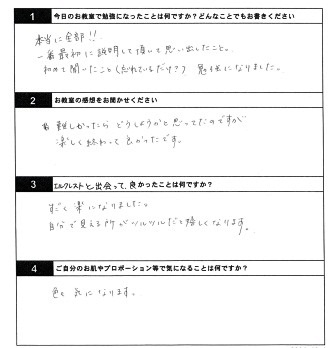 1 今日のお教室で勉強になったことは何ですか？どんなことでもお書きください
本当に全部!!
一番最初に説明して頂いて思い出したこと。
初めて聞いたこと（忘れているだけ??）勉強になりました。
2 お教室の感想をお聞かせください
難しかったらどうしようかと思ってたのですが
楽しく終わって良かったです。
3 エルクレストと出会って、良かったことは何ですか？
すごく楽になりました。
自分で見える所がツルツルだと嬉しくなります。
4 ご自分のお肌やプロポーション等で気になることは何ですか？
色々気になります。